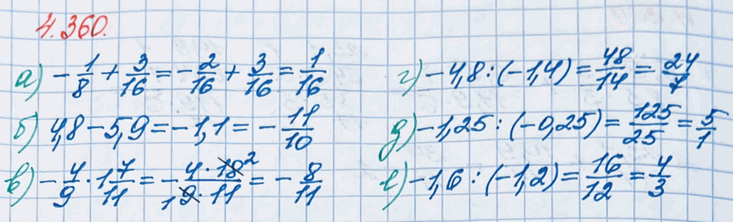 4.360.
а) -1/8 + 3/16 = -2/16 + 3/16 = 1/16
б) 4,8 - 5,9 = -1,1 = -11/10
в) -4/9 · 1 7/11 = -4 · 18 2/1 9 · 11 = -8/11
г) -4,8 : (-1,4) = 48/14 = 24/7
д) -1,25 : (-0,25) = 125/25 = 5/1
е) -1,6 : (-1,2) = 16/12 = 4/3